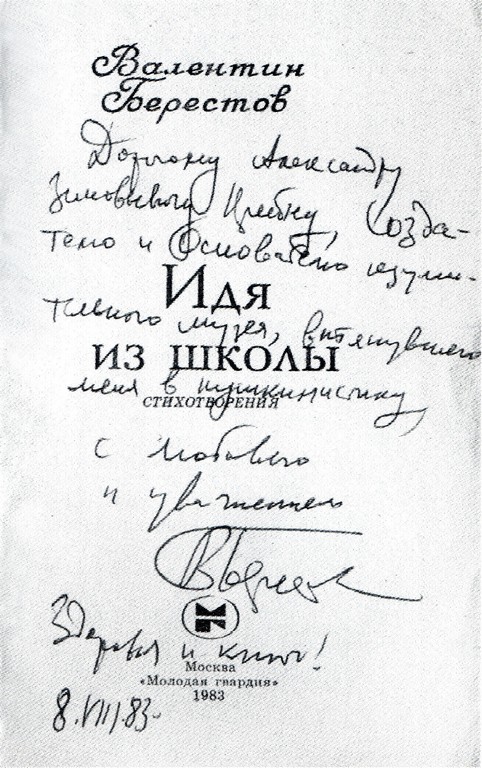 Валентин
Берестов
Дорогому Александру
Зиновьевичу Крейну, Созда-
телю и Основателю изуми-
Идя
тельного музея, втянувшего
из школы
меня в пушкинистику,
СТИХОТВОРЕНИЯ
с любовью
и уважением
В Берестов
Здоровья и книг!
Москва
«Молодая гвардия»
1983
8.VIII.83.